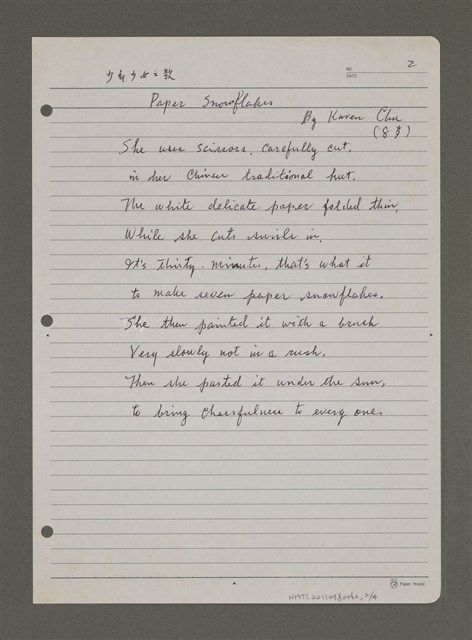 少年少女之歌
NO.
DATE
2
Paper Snowflakes
By Karen Chu
(8岁)
She uses scissors, carefully cut,
in her Chinese traditional hut.
The white delicate paper folded thin,
While she cuts swirls in.
It's thirty-minutes, that's what it
to make seven paper snowflakes.
She then painted it with a brush
Very slowly not in a rush.
Then she pasted it under the sun,
to bring cheerfulness to every one.
Paper music